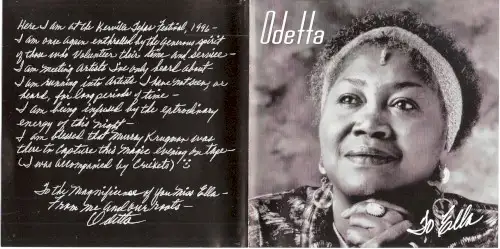 Here I am at the Kerrville Folk Festival, 1996 –
I am once again enthralled by the generous spirit
of those who Volunteer their time and service –
I am meeting Artists I've only heard about –
I am running into Artists I have not seen, or
heard, for long periods of time –
I am being infused by the extrodinary
energy of this night –
I am blessed that Murray Krugman was
there to Capture this magic evening on tape –
(I was accompanied by Crickets) :)
To the Magnificence of you Miss Ella –
From me and our roots –
Odetta
Odetta
To Ella